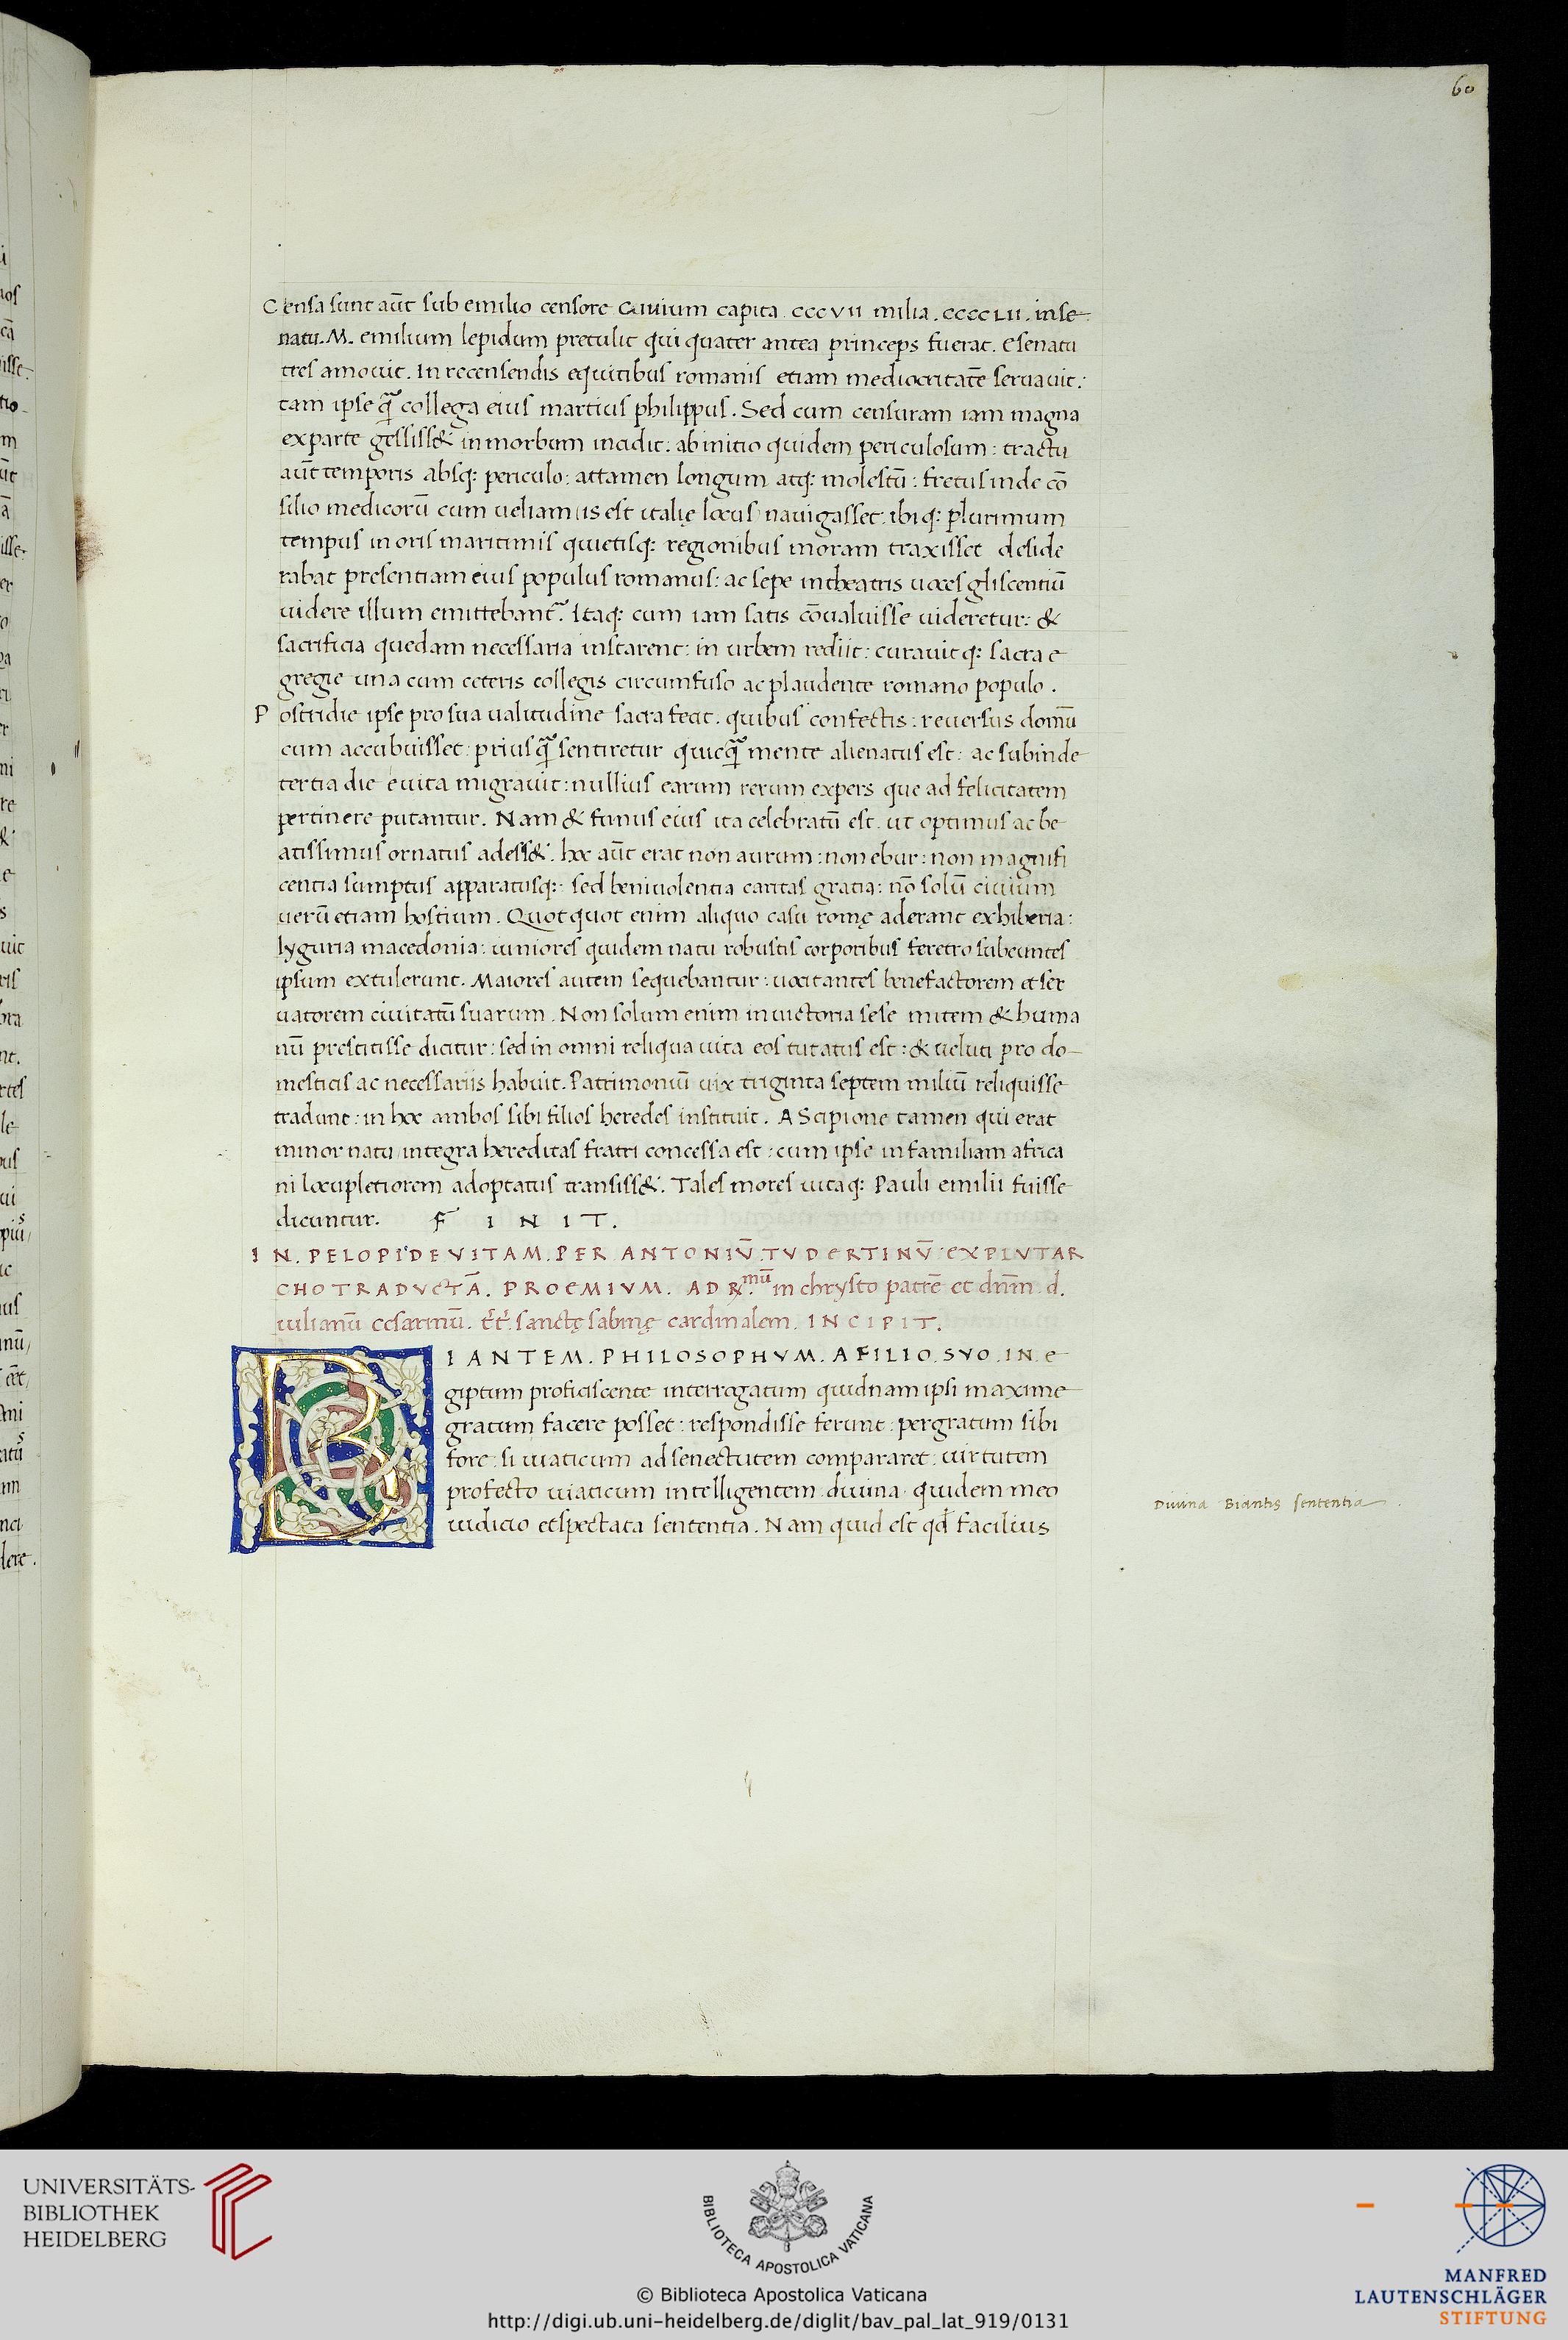 60
Censa sunt aūt sub emilio censore Civium capita cccvii milia . cccc lii . in se-
natu . M. emilium lepidum pretulit qui quater antea princeps fuerat. E senatu
tres amovit. In recensendis equitibus romanis etiam mediocritatē servavit:
tam ipse q̄ collega eius martius philippus. Sed cum censuram iam magna
ex parte gessiss& in morbum incidit: ab initio quidem periculosum: tractu
aūt temporis absq: periculo: attamen longum atq: molestū: fretus inde cō
silio medicorū cum veliam is est italię locus navigasset. ibiq: plurimum
tempus in oris maritimis quietisq: regionibus moram traxisset deside
rabat presentiam eius populus romanus: ac sepe in theatris voces gliscentiū
videre illum emittebant᷑. Itaq: cum iam satis cōvaluisse videretur: &
sacrificia quedam necessaria instarent: in urbem rediit: curavitq: sacra e
gregie una cum ceteris collegis circumfuso ac plaudente romano populo .
Postridie ipse pro sua valitudine sacra fecit. quibus confectis: reversus domū
cum accubuisset: priusq̄ sentiretur quicq̄ mente alienatus est: ac subinde
tertia die e vita migravit: nullius earum rerum expers que ad felicitatem
pertinere putantur. Nam & funus eius ita celebratū est. ut optimus ac be
atissimus ornatus adess&. hoc aūt erat non aurum: non ebur: non magnifi
centia sumptus apparatusq: sed benivolentia caritas gratia: nō solū civium
verū etiam hostium. Quotquot enim aliquo casu romę aderant ex hiberia:
lyguria macedonia: iuniores quidem natu robustis corporibus feretro subeuntes
ipsum extulerunt. Maiores autem sequebantur: vocitantes benefactorem et ser
vatorem civitatū suarum. Non solum enim in victoria sese mitem & huma
nū prestitisse dicitur: sed in omni reliqua vita eos tutatus est: & veluti pro do-
mesticis ac necessariis habuit. Patrimoniū vix triginta septem miliū reliquisse
tradunt: in hoc ambos sibi filios heredes instituit. A Scipione tamen qui erat
minor natu integra hereditas fratri concessa est: cum ipse in familiam africa
ni locupletiorem adoptatus transiss&. Tales mores vitaq: Pauli emilii fuisse
dicuntur. F I N I T.
IN. PELOPIDE VITAM. PER ANTONIV̄. TVDERTINV̄. EX PLVTAR
CHO TRADVCTĀ. PROEMIVM. AD R.mū in chrysto patrē et dn̄m d.
iulianū cesarinū. t̄t̄. sanctę sabinę cardinalem. INCIPIT.
BIANTEM. PHILOSOPHVM. A FILIO. SVO. IN. E
giptum proficiscente interrogatum quidnam ipsi maxime
gratum facere posset: respondisse ferunt: pergratum sibi
fore: si viaticum ad senectutem compararet: virtutem
profecto viaticum intelligentem. divina quidem meo
iudicio et spectata sententia. Nam quid est qd̄ facilius
Divina Biantis sententia
UNIVERSITÄTS-
BIBLIOTHEK
HEIDELBERG
BIBLIOTECA APOSTOLICA VATICANA
© Biblioteca Apostolica Vaticana
http://digi.ub.uni-heidelberg.de/diglit/bav_pal_lat_919/0131
MANFRED
LAUTENSCHLÄGER
STIFTUNG